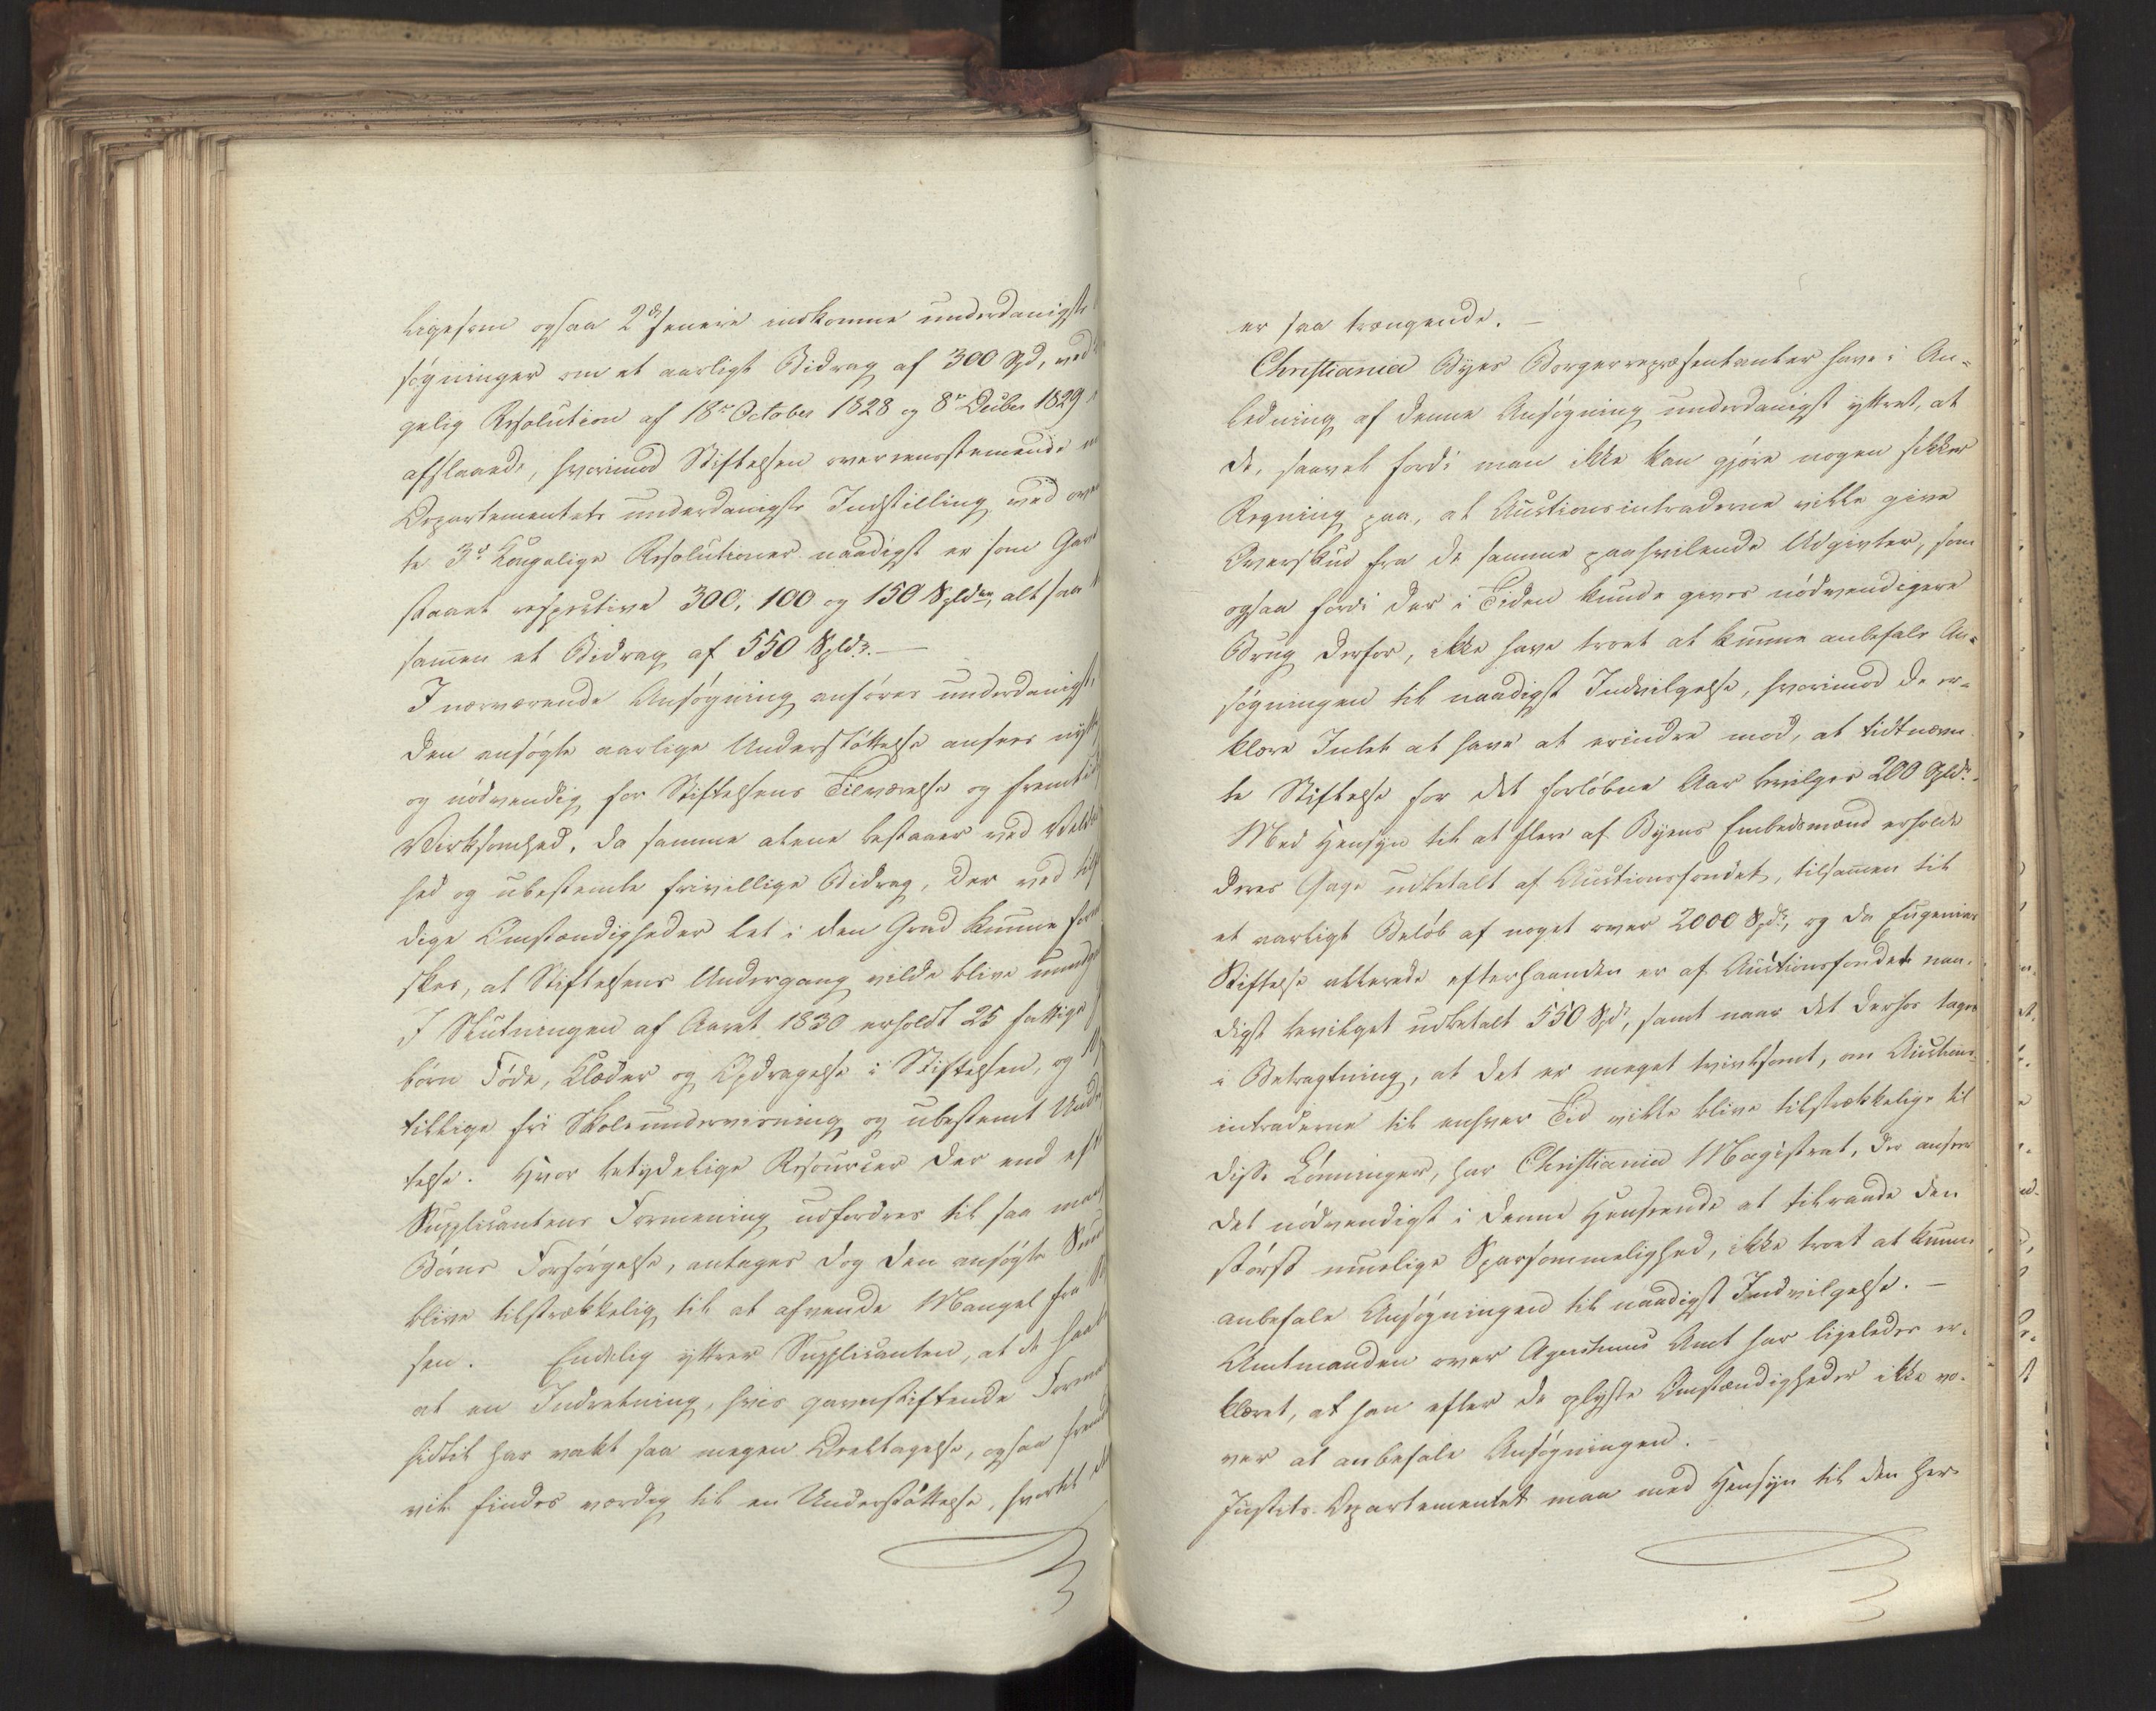 ligesom ogsaa 2de senere indkomne underdanigste
søgninger om et aarligt Bidrag af 300 Spd, ved
gelig Resolution af 18de October 1828 og 8de Decbr 1829
afslaaede, hvorimod Stiftelsen overeensstemmende
Departementets underdanigste Indstilling ved
te 3de Kongelige Resolutioner naadigst er som
staaet respective 300, 100 og 150 Spldr, altsaa
sammen et Bidrag af 550 Spldr. —
I nærværende Ansøgning anføres underdanigst,
den ansøgte aarlige Understøttelse ansees
og nødvendig for Stiftelsens Tilværelse og
Virksomhed, da samme alene bestaaer ved
hed og ubestemte frivillige Bidrag, der ved
dige Omstændigheder let i den Grad kunne
skes, at Stiftelsens Undergang vilde blive
I Slutningen af Aaret 1830 erholdt 25 fattige
børn Føde, Klæder og Opdragelse i Stiftelsen, og
tillige fri Skoleundervisning og ubestemt
telse. Hvor betydelige Resourcer der end
Supplicantens Formening udfordres til saa
Børns Forsørgelse, antages dog den ansøgte
blive tilstrækkelig til at afvende Mangel fra
sen. Endelig yttrer Supplicanten, at de
at en Indretning, hvis gavnstiftende
hidtil har vakt saa megen Deeltagelse, ogsaa
vil findes værdig til en Understøttelse, hvortil
er saa trængende. —
Christiania Byes Borgerrepræsentanter have i An-
ledning af denne Ansøgning underdanigst yttret, at
de, saavel fordi man ikke kan gjøre nogen sikker
Regning paa, at Auctionsintraderne ville give
Overskud fra de samme paahvilende Udgivter, som
ogsaa fordi der i Tiden kunde gives nødvendigere
Brug derfor, ikke have troet at kunne anbefale An-
søgningen til naadigst Indvilgelse, hvorimod de er-
klære Intet at have at erindre mod, at tidtnævn-
te Stiftelse for det forløbne Aar bevilges 200 Spldr.
Med Hensyn til at flere af Byens Embedsmænd erholde
deres Gage udbetalt af Auctionsfondet, tilsammen til
et aarligt Beløb af noget over 2000 Spdr, og da Eugenias
Stiftelse allerede efterhaanden er af Auctionsfondet naa-
digst bevilget udbetalt 550 Spdr, samt naar det derhos tages
i Betragtning, at det er meget tvivlsomt, om Auctions-
intraderne til enhver Tid ville blive tilstrækkelige til
disse Lønninger, har Christiania Magistrat, der anseer
det nødvendigst i denne Henseende at tilraade den
størst muelige Sparsommelighed, ikke troet at kunne
anbefale Ansøgningen til naadigst Indvilgelse. —
Amtmanden over Agershuus Amt har ligeledes er-
klæret, at han efter de oplyste Omstændigheder ikke vo-
ver at anbefale Ansøgningen. —
Justits-Departementet maa med Hensyn til den her-